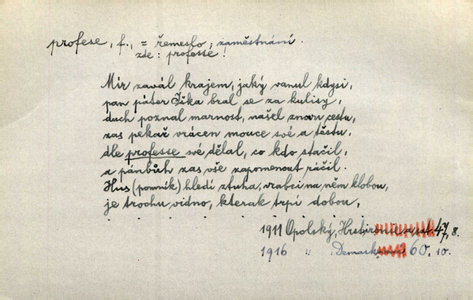 profese, f., = řemeslo; zaměstnání.
zde: professe!
Mír zavál krajem, jaký vanul kdysi,
pan páter Jíška bral se za kulisy,
duch poznal marnost, našel znovu cestu,
zas pekař vrácen mouce své a těstu,
dle professe své dělal, co kdo stačil,
a pánbůh zas vše zapomenout ráčil.
Hus (pomník) hledí ztuha, vrabci na něm klobou,
je trochu vidno, kterak trpí dobou,
1911 Opolský, 47, 8.
1916 " 60. 10.